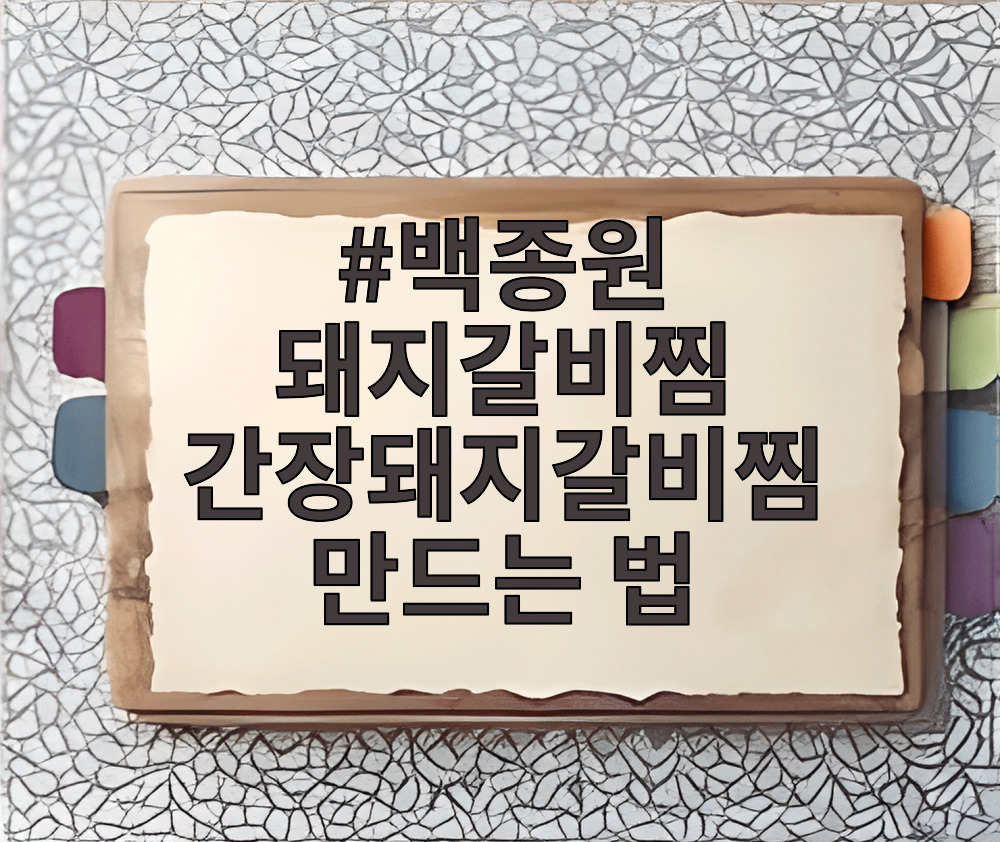 #백종원
돼지갈비찜
간장돼지갈비찜
만드는 법